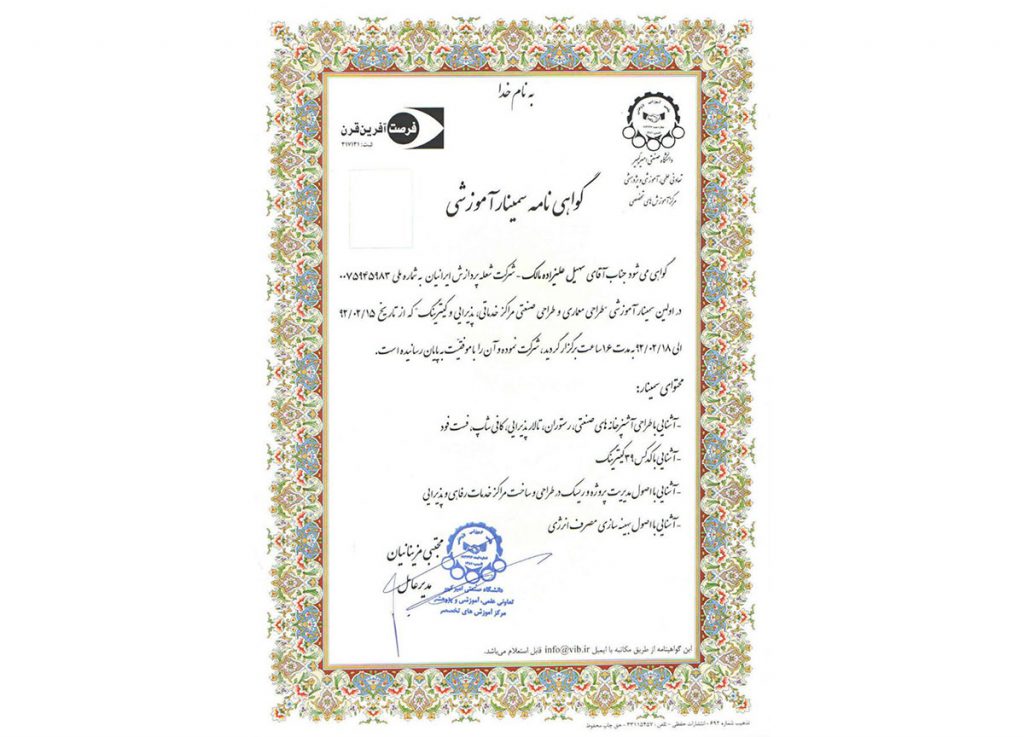 به نام خدا
فرصت آفرین قرن
ثبت: ۲۱۷۱۳۱
دانشگاه صنعتی امیرکبیر
تعاونی علمی، آموزشی و پژوهشی
مرکز آموزش های تخصصی
گواهی نامه سمینار آموزشی
گواهی می شود جناب آقای سهیل علیزاده مالک - شرکت شعله پردازش ایرانیان به شماره ملی ۰۰۷۵۹۴۵۹۸۳
در اولین سمینار آموزشی "طراحی معماری و طراحی صنعتی مراکز خدماتی، پذیرایی و کیترینگ" که از تاریخ ۹۲/۰۲/۱۵
الی ۹۲/۰۲/۱۸ به مدت ۱۶ ساعت برگزار گردید، شرکت نموده و آن را با موفقیت به پایان رسانیده است.
محتوای سمینار:
- آشنایی با طراحی آشپزخانه های صنعتی، رستوران، تالار پذیرایی، کافی شاپ، فست فود
- آشنایی با کدکس ۳۹ کیترینگ
- آشنایی با اصول مدیریت پروژه و ریسک در طراحی و ساخت مراکز خدمات رفاهی و پذیرایی
- آشنایی با اصول بهینه سازی مصرف انرژی
مجتبی مزینانیان
مدیرعامل
دانشگاه صنعتی امیرکبیر
تعاونی علمی، آموزشی و پژوهشی
مرکز آموزش های تخصصی
این گواهینامه از طریق مکاتبه با ایمیل info@vib.ir قابل استعلام می‌باشد.
تذهیب شماره ۶۹۲ - انتشارات حفظی - تلفن: ۳۳۱۱۵۴۵۷ - حق چاپ محفوظ